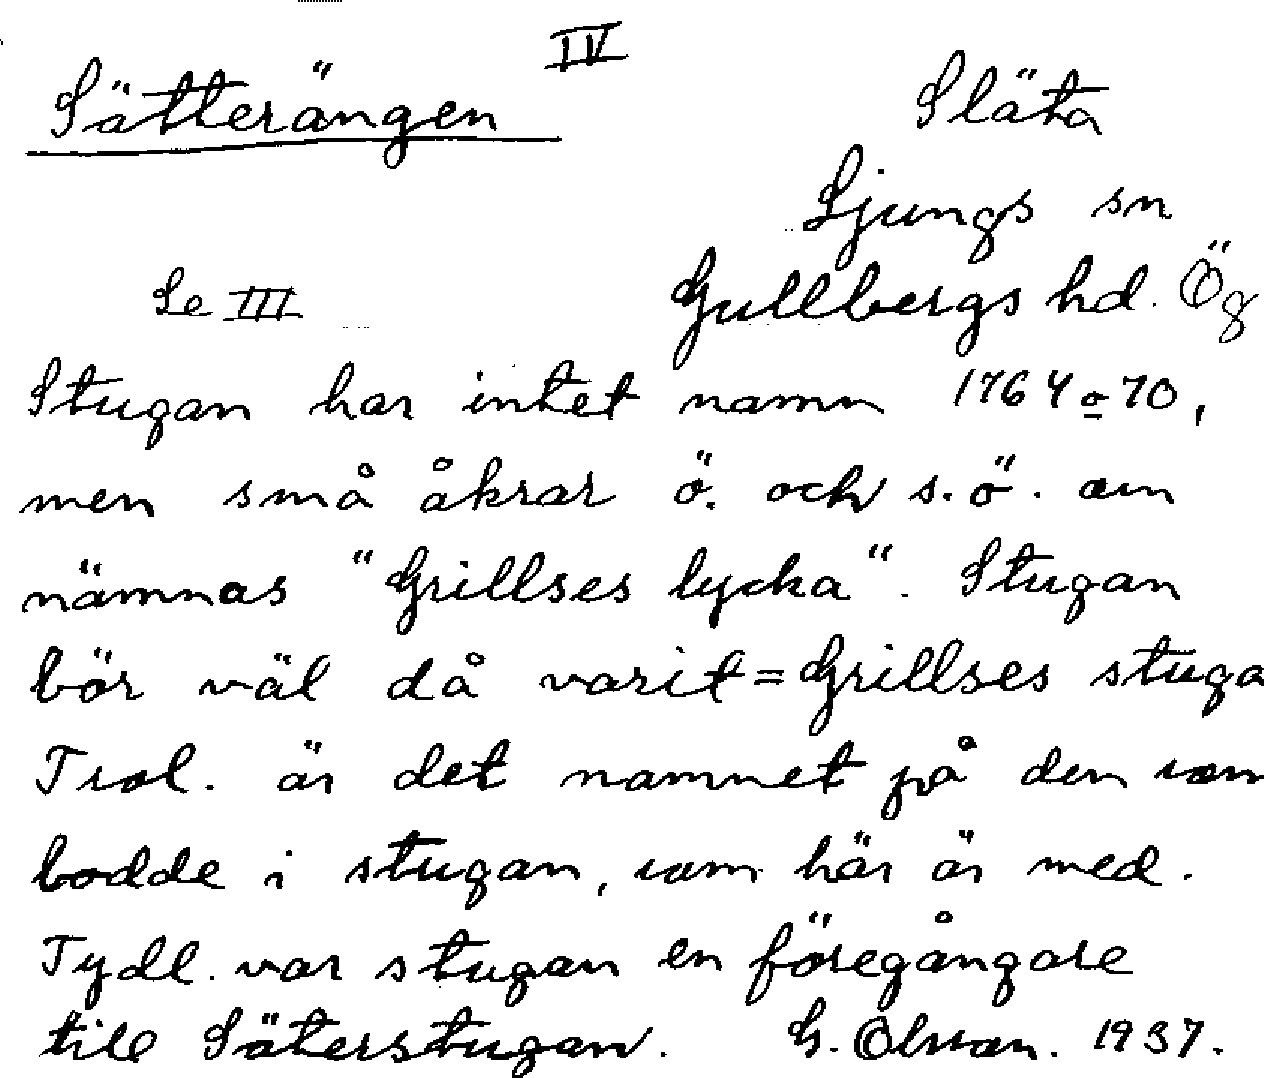 IV
Sätterängen
Släta
Ljungs sn
Se III
Gullbergs hd. Ög
Stugan har intet namn 1764 o 70,
men små åkrar ö. och s.ö. om
nämnas "Grillses lycka". Stugan
bör väl då varit = Grillses stuga
Trol. är det namnet på den som
bodde i stugan, som här är med.
Tydl. var stugan en föregångare
till Säterstugan. G. Olsson. 1937.